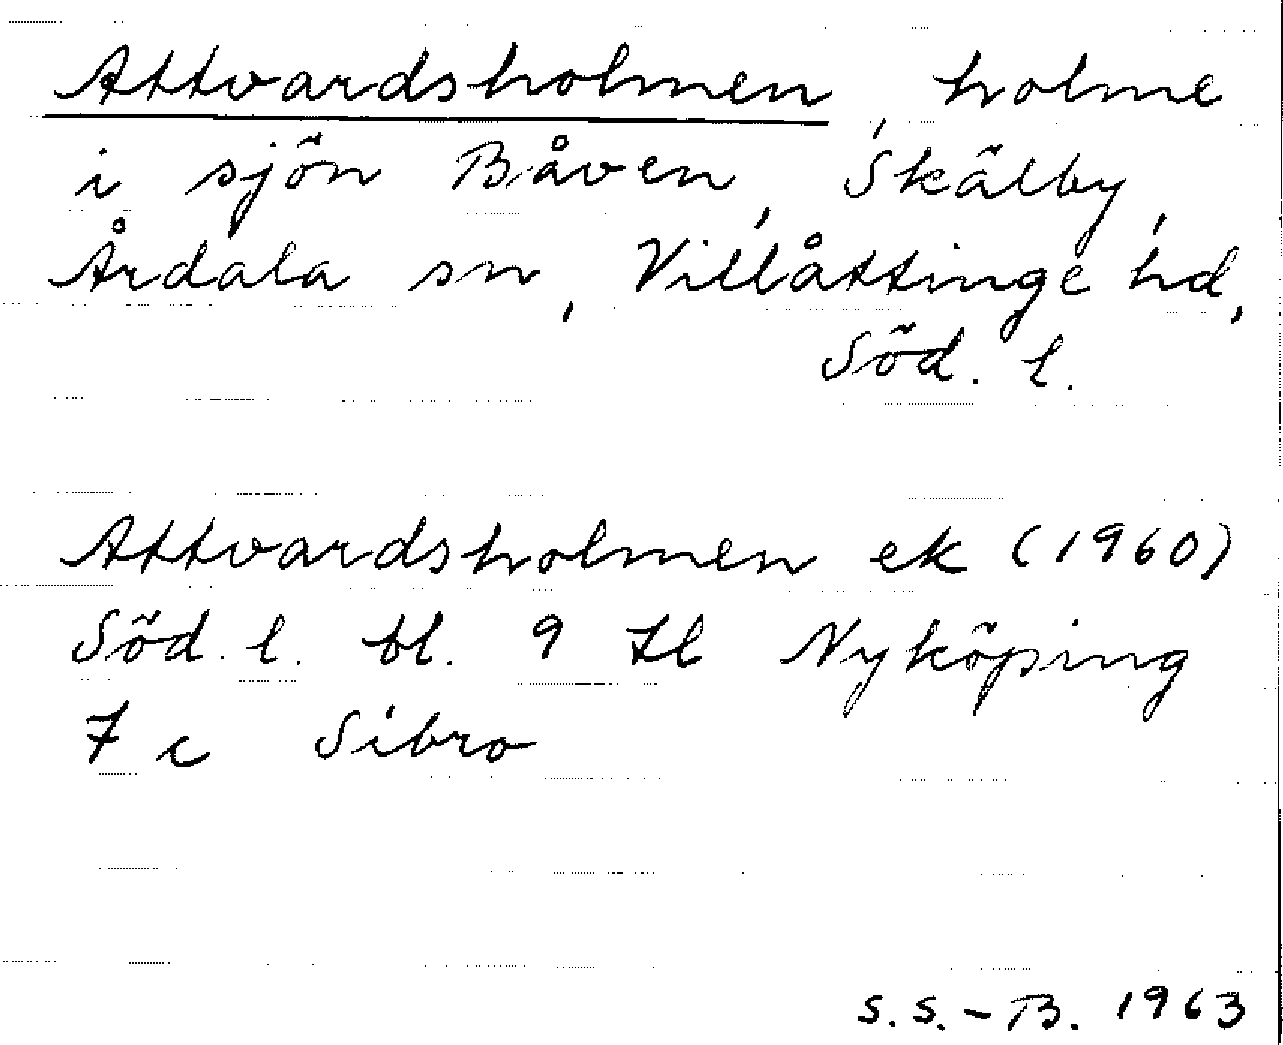 Attvardsholmen, holme
i sjön Båven, Skälby,
Årdala sn, Villåttinge hd,
Söd. l.
Attvardsholmen ek (1960)
Söd. l. bl. 9 Nyköping
7 c Sibro
S.S.-B. 1963